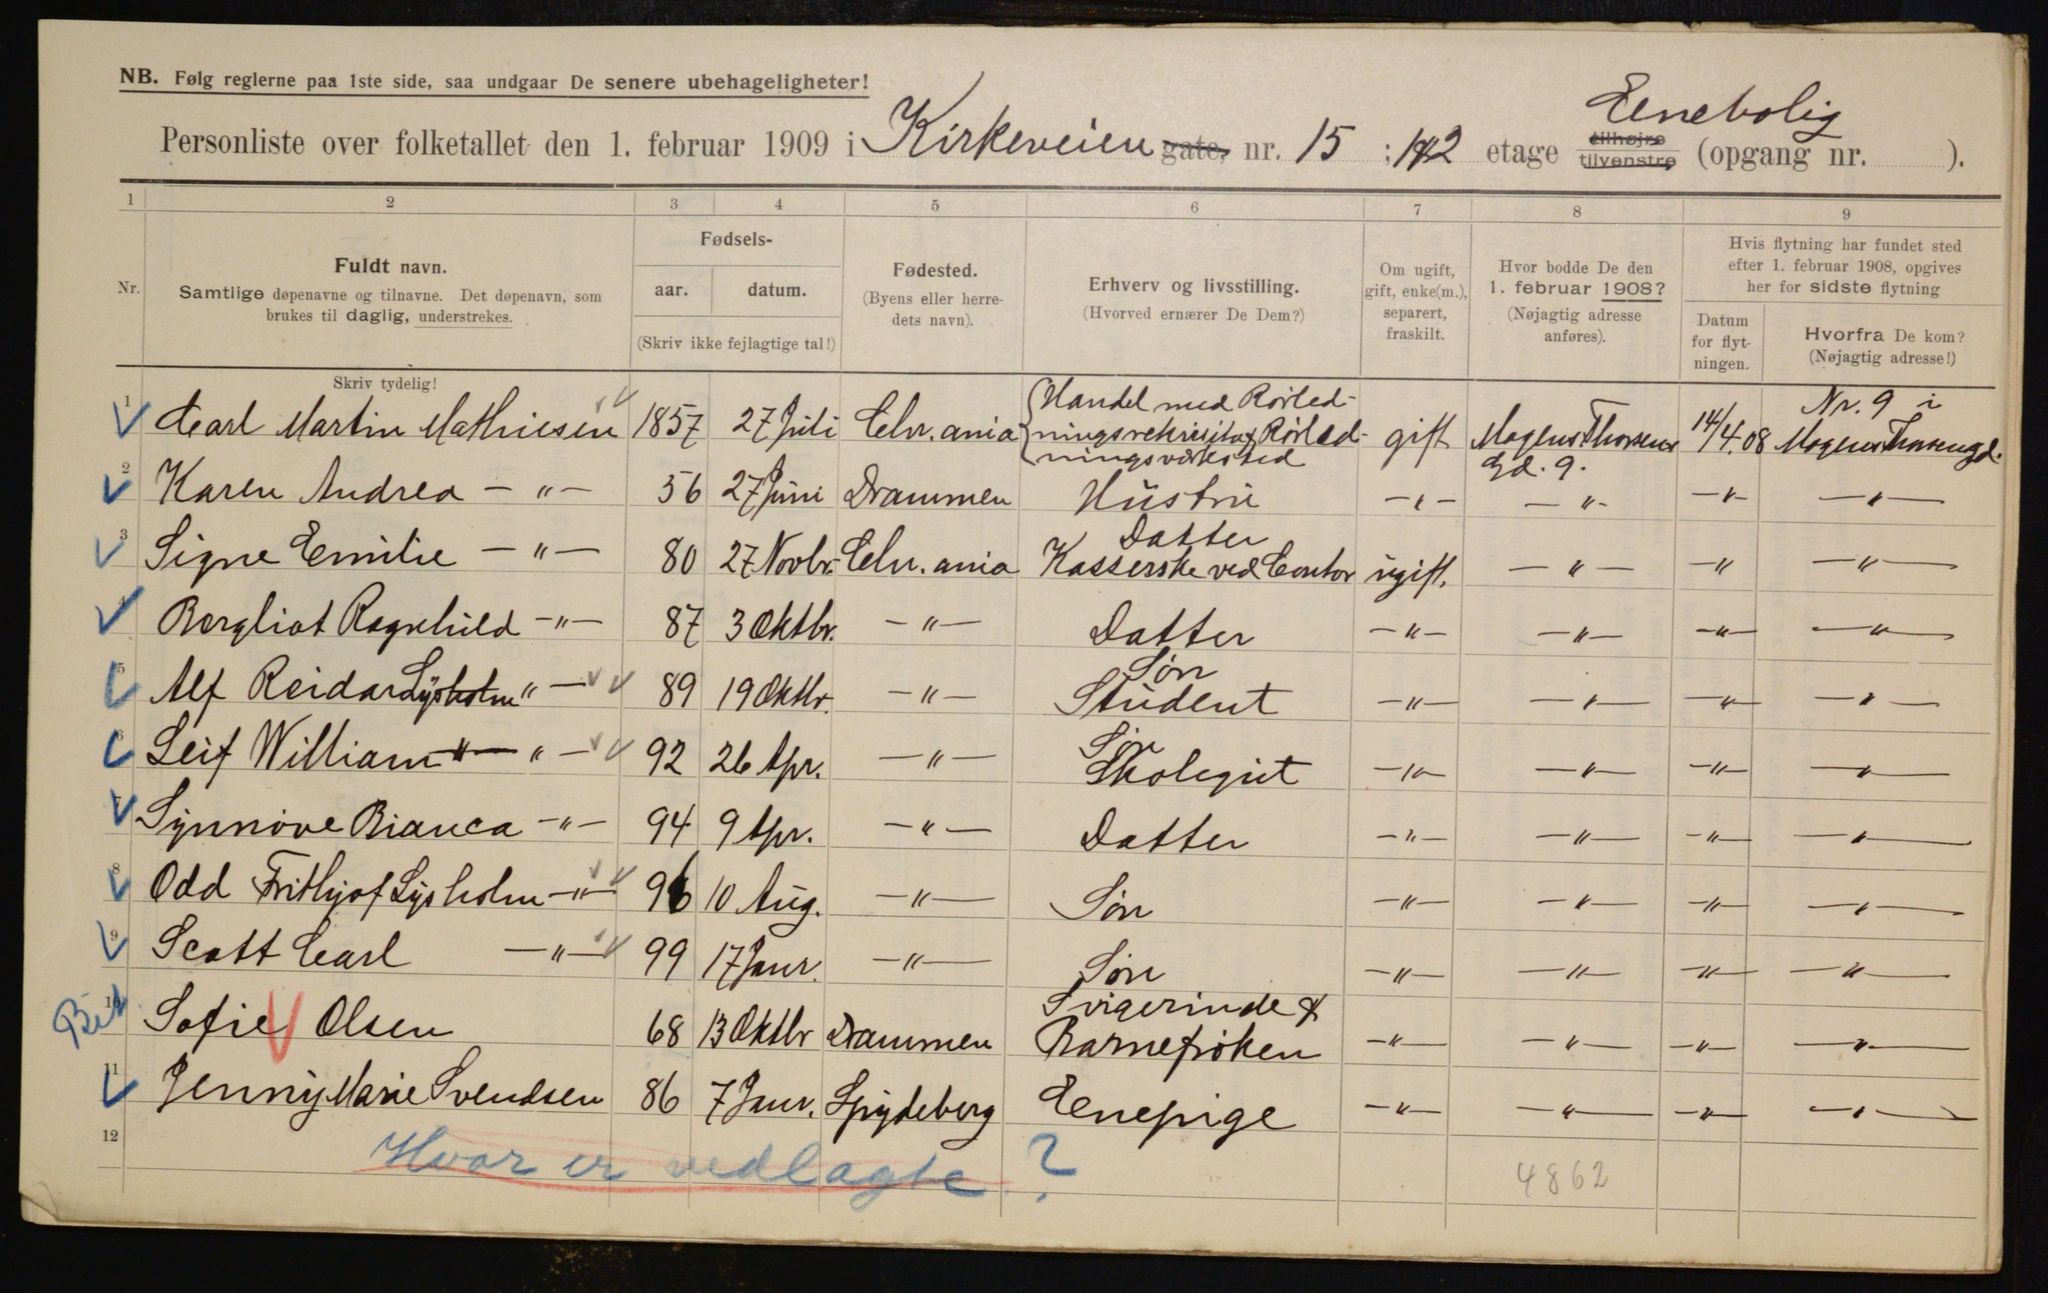 NB. Følg reglerne paa 1ste side, saa undgaar De senere ubehageligheter!
Enebolig
Personliste over folketallet den 1. februar 1909 i Kirkeveien gate, nr. 15 ; 1 & 2 etage tilhøjre tilvenstre (opgang nr. ).
1 2 3 4 5 6 7 8 9
Nr.
Fuldt navn.
Samtlige døpenavne og tilnavne. Det døpenavn, som
brukes til daglig, understrekes.
Skriv tydelig!
Fødsels-
aar. datum.
(Skriv ikke fejlagtige tal!)
Fødested.
(Byens eller herre-
dets navn).
Erhverv og livsstilling.
(Hvorved ernærer De Dem?)
Om ugift,
gift, enke(m.),
separert,
fraskilt.
Hvor bodde De den
1. februar 1908?
(Nøjagtig adresse
anføres).
Hvis flytning har fundet sted
efter 1. februar 1908, opgives
her for sidste flytning
Datum
for flyt-
ningen.
Hvorfra De kom?
(Nøjagtig adresse!)
1 Carl Martin Mathiesen 1857 27 Juli Chr.ania Handel med Rørled-
ningsrekvisita & Rørled-
ningsverksted gift Mogens Thorsens
Gd. 9. 14/4.08 Nr. 9 i
Mogens Thorsensgd.
2 Karen Andrea — " — 56 27 Juni Drammen Hustru — " — — " — — " — — " —
3 Signe Emilie — " — 80 27 Novbr. Chr.ania Datter
Kasserske ved Contor ugift. — " — — " — — " —
4 Borgliot Ragnhild — " — 87 3 Oktbr. — " — Datter — " — — " — — " — — " —
5 Alf Reidar Lysholm " — 89 19 Oktbr. — " — Søn
Student — " — — " — — " — — " —
6 Leif William — " — " — 92 26 Apr. — " — Søn
Skolegut — " — — " — — " — — " —
7 Synnøve Bianca — " — 94 9 Apr. — " — Datter — " — — " — — " — — " —
8 Odd Frithjof Lysholm — " — 96 10 Aug. — " — Søn — " — — " — — " — — " —
9 Scott Carl — " — 99 17 Janr. — " — Søn — " — — " — — " — — " —
10 Sofie Olsen 68 13 Oktbr Drammen Svigerinde &
Barnefrøken — " — — " — — " — — " —
11 Jenny Marie Svendsen 86 7 Janr. Spydeberg Enepige — " — — " — — " — — " —
12
Hvor er vedlagte ?
4862